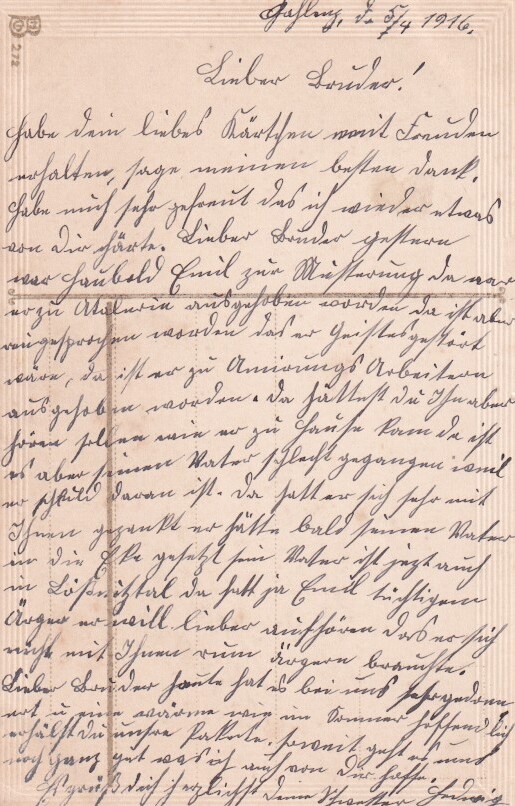 272
Gahlenz, d. 5/4 1916.
Lieber Bruder!
Habe dein liebes Kärtchen mit Freuden
erhalten, sage meinen besten Dank.
Habe mich sehr gefreut das ich wieder etwas
von Dir hörte. Lieber Bruder gestern
war Haubold Emil zur Musterung da war
er zu Atalerie ausgehoben worden da ist aber
worden das er Geistesgestört
wäre, da ist er zu Arbeitern
ausgehoben worden. Da hättest du Ihn aber
hören sollen wie er zu Hause kam da ist
es aber seinen Vater schlecht gegangen weil
er schuld daran ist. Da hatt er sich sehr mit
Ihnen gezankt er hätte bald seinen Vater
in die Eke gesetzt sein Vater ist jezt auch
in Lößnitztal da hatt ja Emil tüchtigen
Ärger er will lieber aufhören das er sich
nicht mit Ihnen rum ärgern brauchte.
Lieber Bruder heute hat es bei uns sehr gedonn
ert u. eine wärme wie im Sommer hoffendlich
erhälst du unsre Pakete. soweit geht es uns
noch ganz gut was ich auch von dir hoffe.
Es grüß dich herzlichst deine Schwester Hedwig